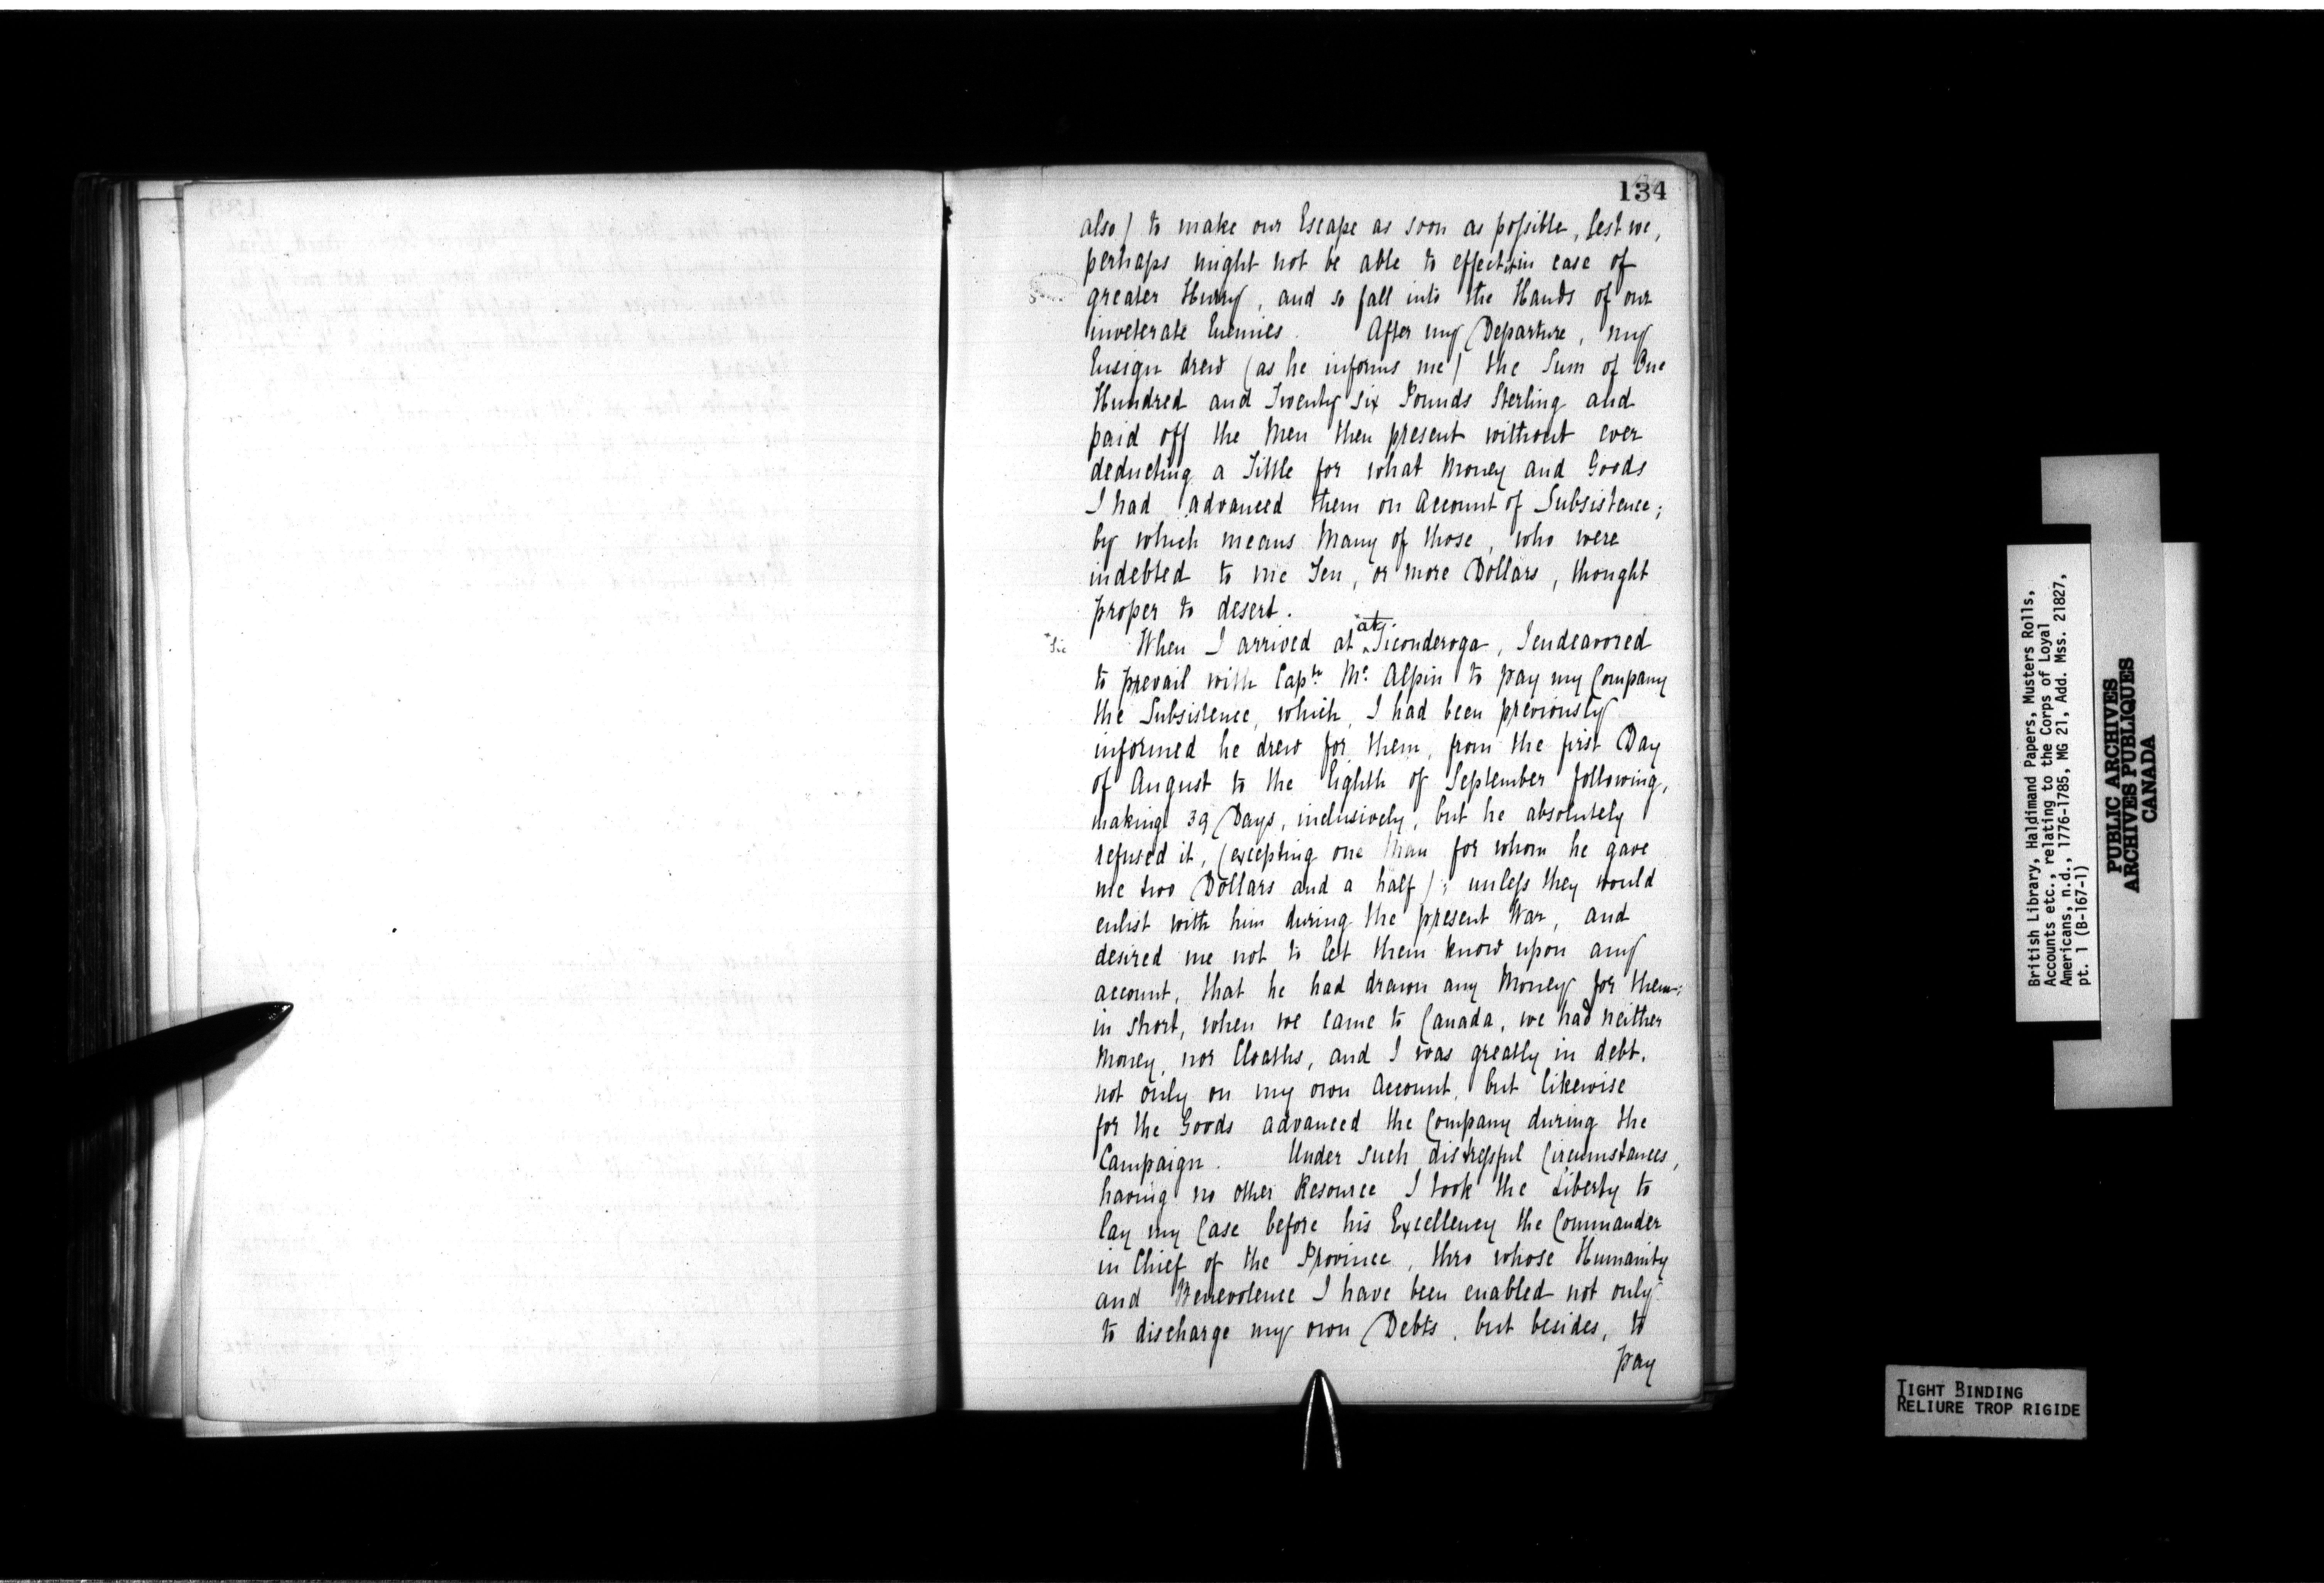 134
also) to make our Escape as soon as possible, lest we,
perhaps might not be able to effect it in case of
greater Hurry, and so fall into the Hands of our
inveterate Enemies. After my Departure, my
Ensign drew (as he informs me) the Sum of One
Hundred and Twenty six Pounds Sterling and
paid off the Men then present without ever
deducting a Tittle for what Money and Goods
I had advanced them on Account of Subsistence;
by which means Many of those, who were
indebted to me Ten, or more Dollars, thought
proper to desert.
"at"
Sic When I arrived at Ticonderoga, I endeavored
to prevail with Captn. Mc. Alpin to pay my Company
the Subsistence, which, I had been previously
informed he drew for them, from the first Day
of August to the Eighth of September following,
making 39 Days, inclusively, but he absolutely
refused it, (excepting one Man for whom he gave
me two Dollars and a half); unless they would
enlist with him during the present War, and
desired me not to let them know upon any
account, that he had drawn any Money for them;
in short, when we came to Canada, we had neither
Money, nor Cloaths, and I was greatly in debt,
not only on my own Account, but likewise
for the Goods advanced the Company during the
Campaign. Under such distressful Circumstances,
having no other Resource I took the Liberty to
lay my Case before his Excellency the Commander
in Chief of the Province, thro whose Humanity
and Benevolence I have been enabled not only
to discharge my own Debts, but besides, to
pay
British Library, Haldimand Papers, Musters Rolls,
Accounts etc., relating to the Corps of Loyal
Americans, n.d., 1776-1785, MG 21, Add. Mss. 21827,
pt. 1 (B-167-1)
PUBLIC ARCHIVES
ARCHIVES PUBLIQUES
CANADA
TIGHT BINDING
RELIURE TROP RIGIDE